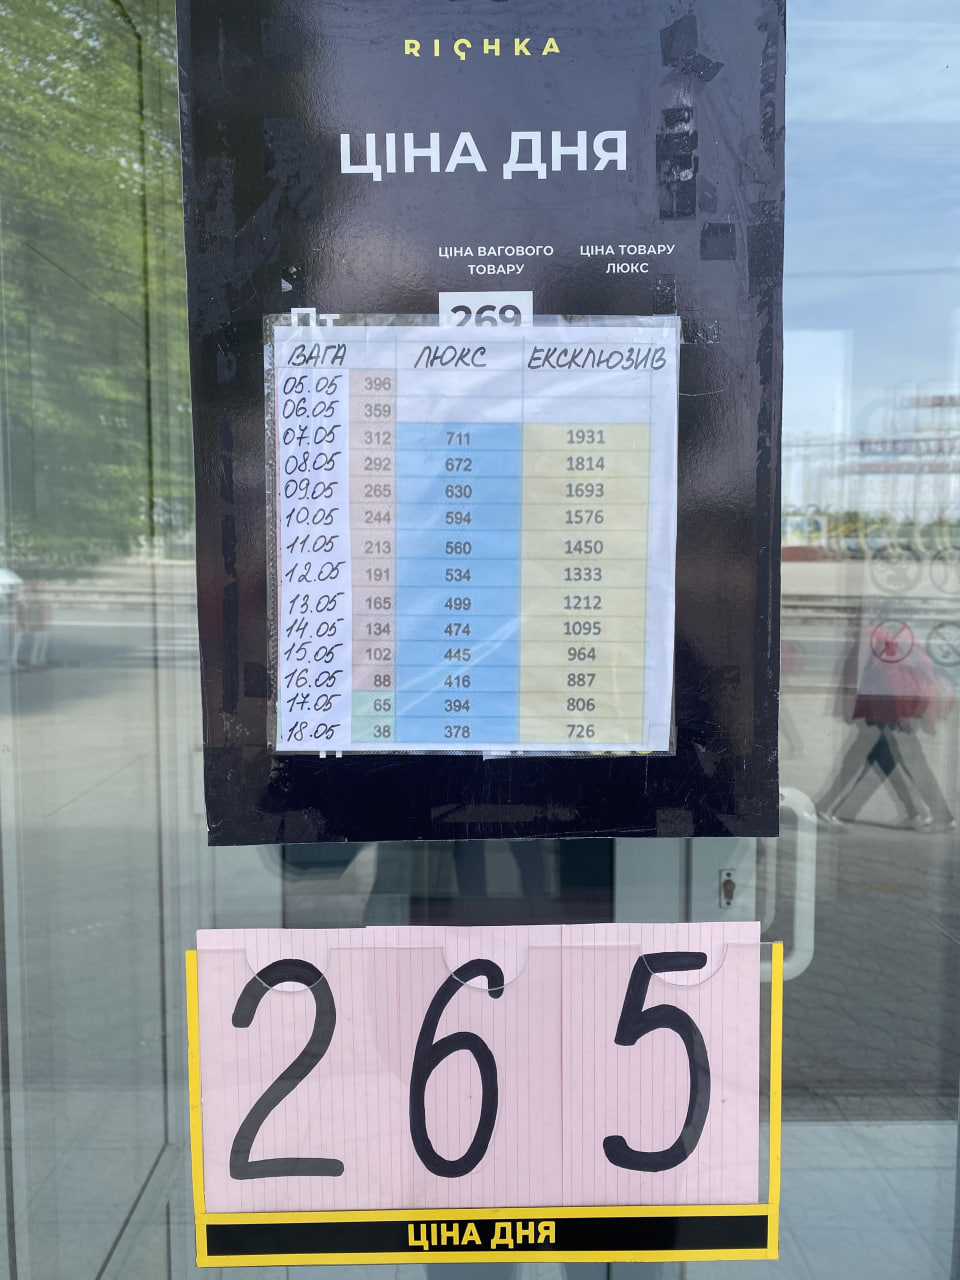 RICHKA
ЦІНА ДНЯ
ЦІНА ВАГОВОГО ТОВАРУ
ЦІНА ТОВАРУ ЛЮКС
Пт 269
ВАГА ЛЮКС ЕКСКЛЮЗИВ
05.05 396
06.05 359
07.05 312 711 1931
08.05 292 672 1814
09.05 265 630 1693
10.05 244 594 1576
11.05 213 560 1450
12.05 191 534 1333
13.05 165 499 1212
14.05 134 474 1095
15.05 102 445 964
16.05 88 416 887
17.05 65 394 806
18.05 38 378 726
265
ЦІНА ДНЯ